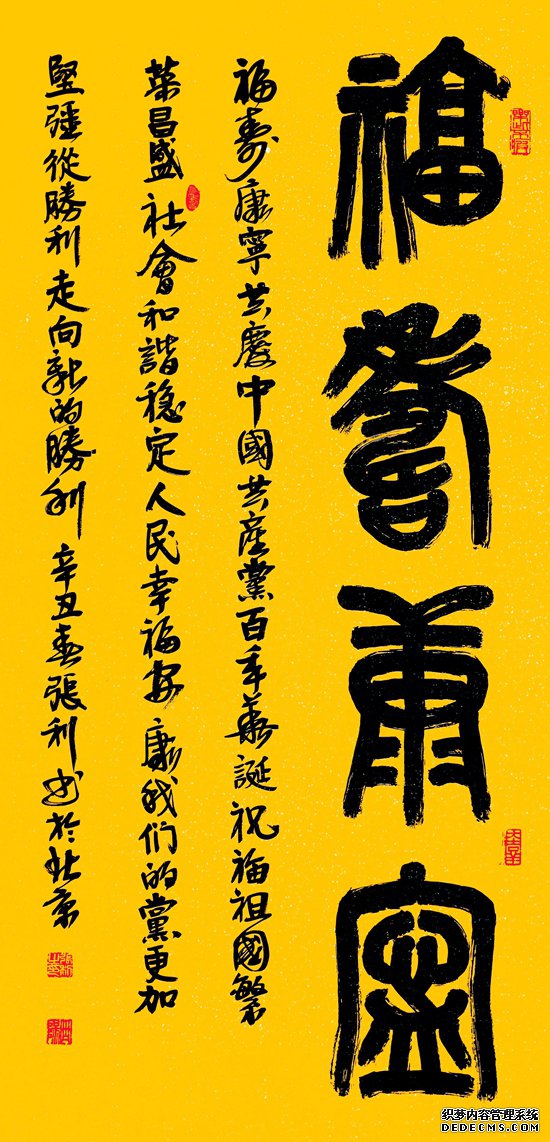 福壽康寧
福壽康寧共慶中國共產黨百年華誕祝福祖國繁
荣昌盛社會和諧穩定人民幸福安康我们的黨更加
堅强從勝利走向新的勝利 辛丑春張利书於北京
织梦内容管理系统
DEDECMS.COM